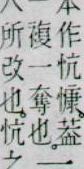 本作忼慷。葢一
複一奪也。
所改也。忼之